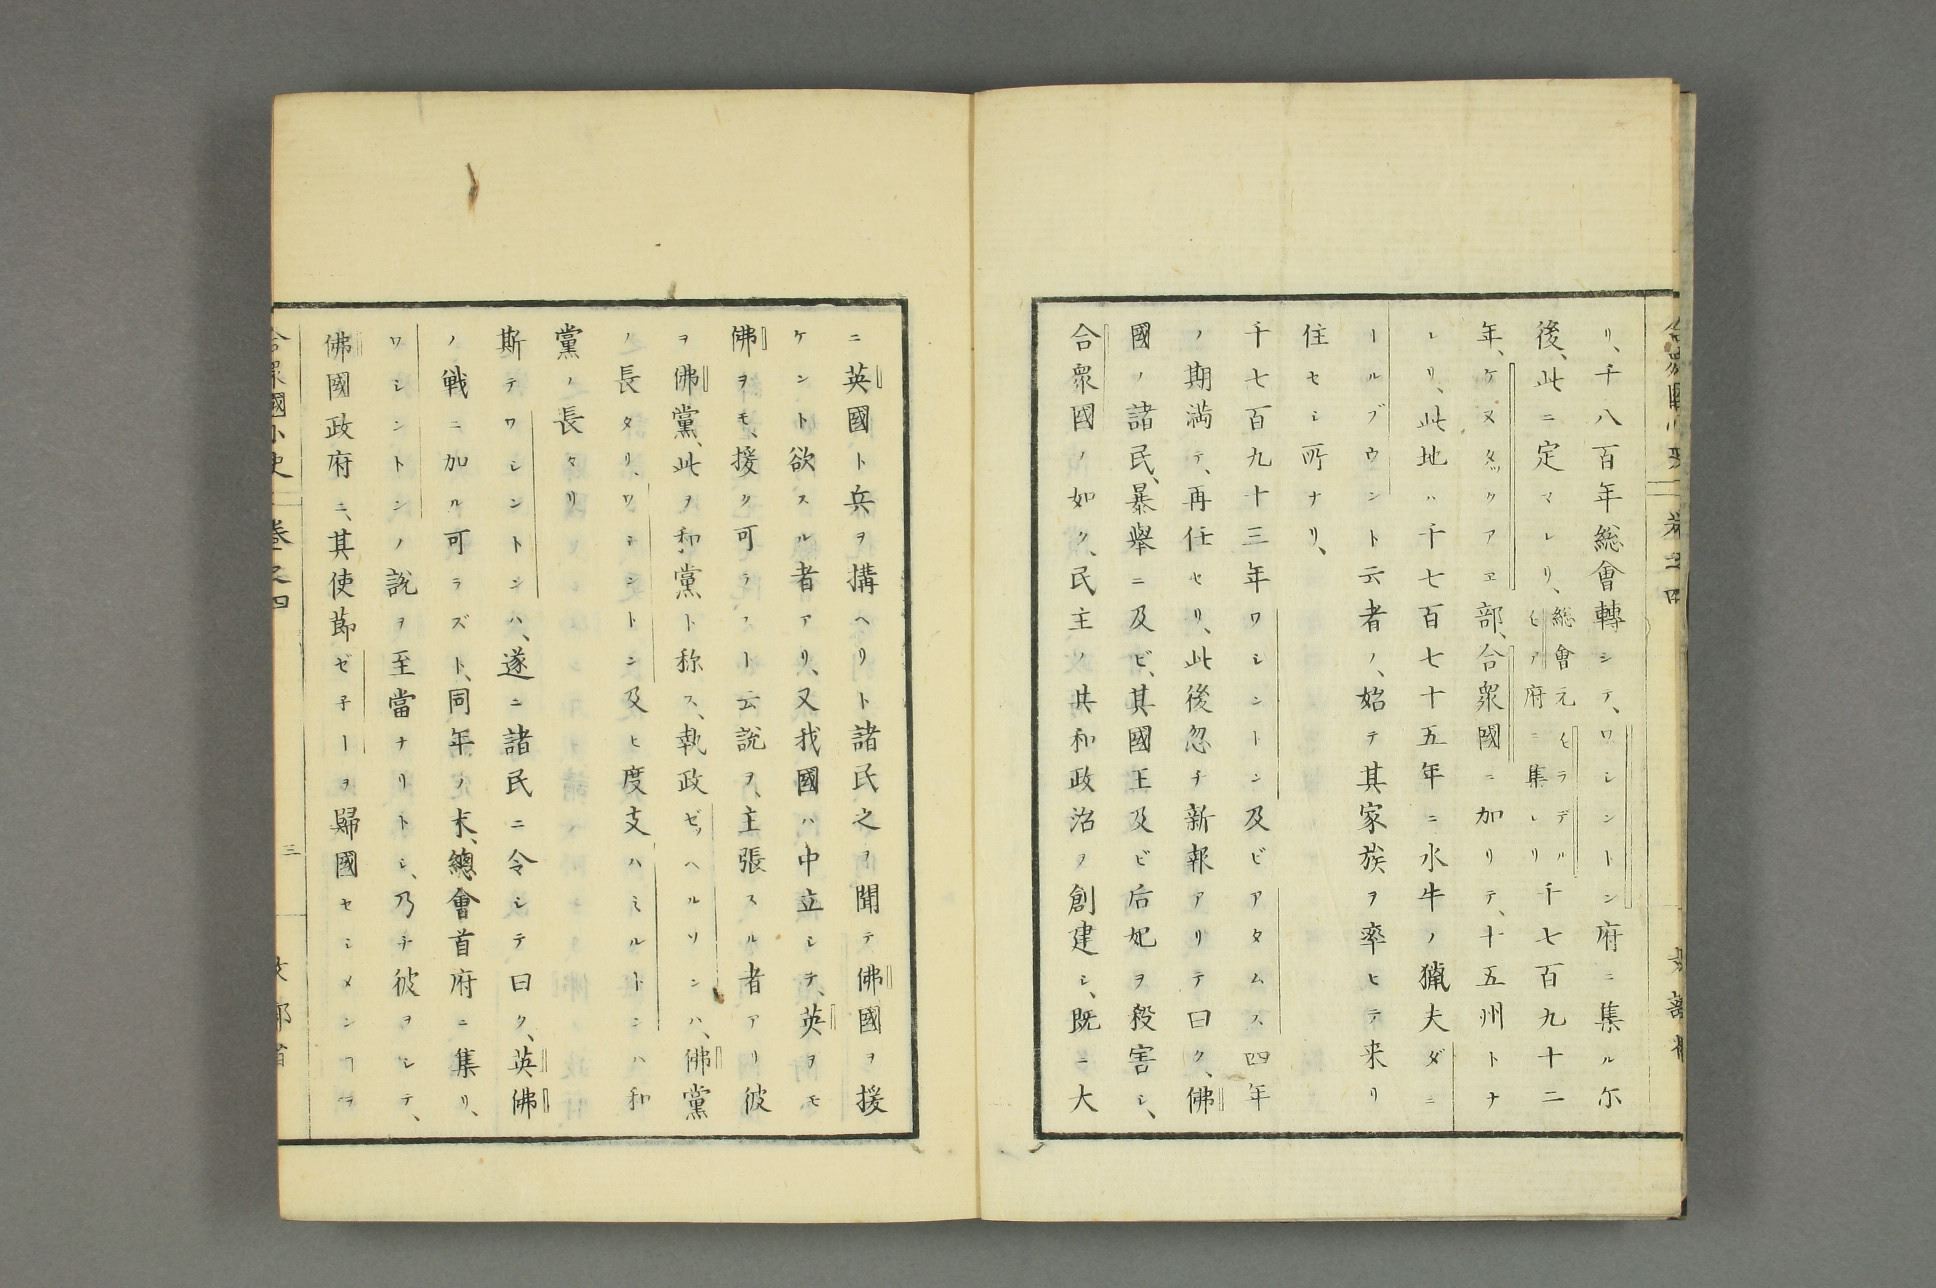 リ、千八百年総會轉シテ、ワシントン府ニ集ル尓
後、此ニ定マレリ、総會元ヒラデルヒア府ニ集レリ千七百九十二
年、ケヌタックアエ部、合衆國ニ加リテ、十五州トナ
レリ、此地ハ千七百七十五年ニ水牛ノ猟夫ダニ
ールブウント云者ノ、始テ其家族ヲ率ヒテ来リ
住セシ所ナリ、
千七百九十三年ワシントン及ビアタムス四年
ノ期満テ、再任セリ、此後忽チ新報アリテ曰ク、佛
國ノ諸民、暴舉ニ及ビ、其國王及ビ后妃ヲ殺害シ、
合衆國ノ如ク、民主ノ共和政治ヲ創建シ、既ニ大
ニ英國ト兵ヲ搆ヘリト諸民之ヲ聞テ佛國ヲ援
ケント欲スル者アリ、又我國ハ中立シテ、英ヲモ
佛ヲモ、援ク可ラスト云說ヲ、主張スル者アリ彼
ヲ佛黨、此ヲ和黨ト称ス、執政ゼッヘルソンハ、佛黨
ノ長タリ、ワシントン及ヒ度支ハミルトンハ和
黨ノ長タリ
斯テワシントンハ、遂ニ諸民ニ令シテ曰ク、英佛
ノ戦ニ加ル可ラズト、同年ノ末、總會首府ニ集リ、
ワシントンノ說ヲ至當ナリトシ、乃チ彼ヲシテ、
佛國政府ニ、其使節ゼ子ーヲ歸國セシメンヿヲ
合衆國小史 卷之四
三
文部省